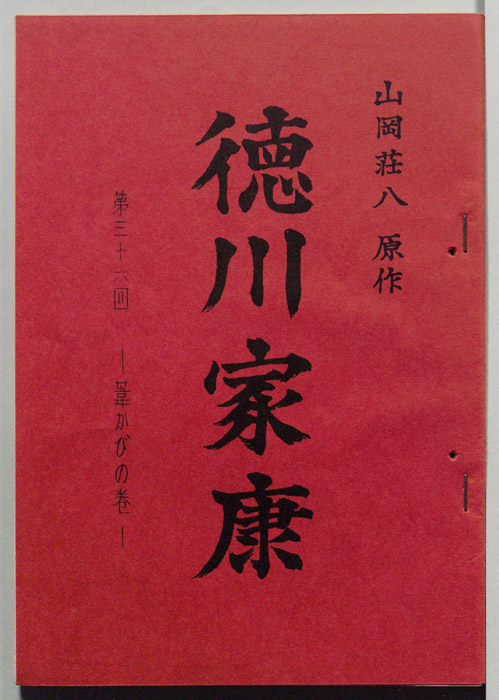 山岡荘八 原作
徳川家康
第三十六回 ー葦かびの巻ー